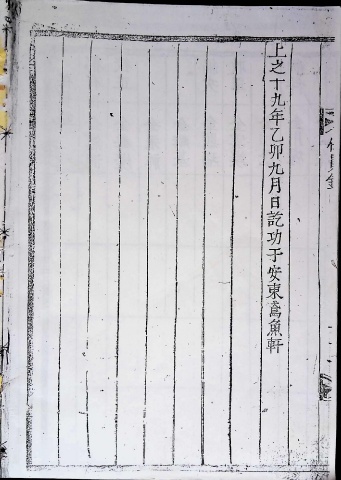 上之十九年乙卯九月日訖功于安東鳶魚軒